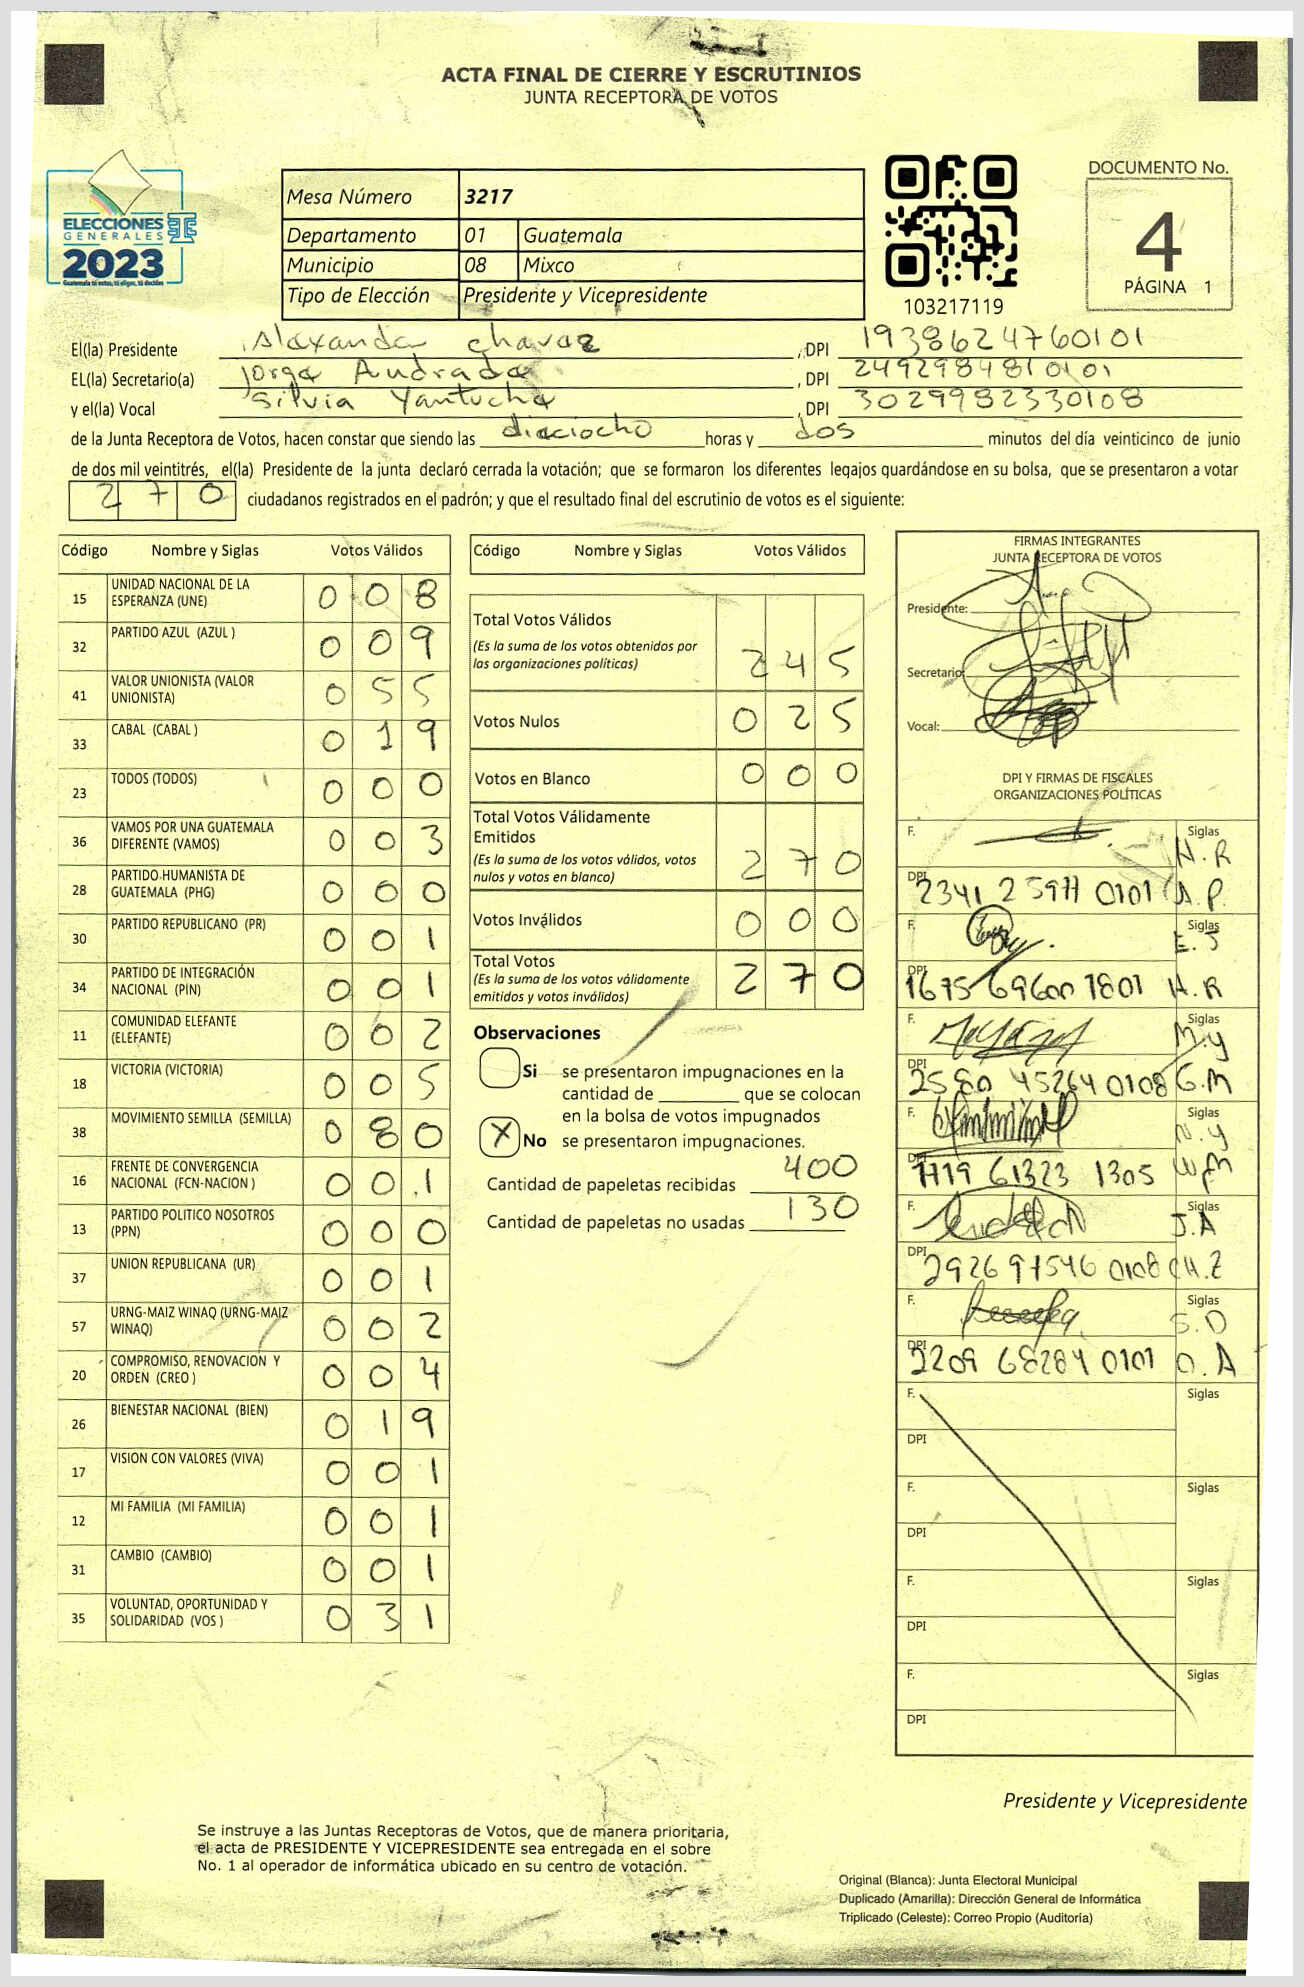 ACTA FINAL DE CIERRE Y ESCRUTINIOS
JUNTA RECEPTORA DE VOTOS
ELECCIONES
GENERALES
2023
Mesa Número 3217
Departamento 01 Guatemala
Municipio 08 Mixco
Tipo de Elección Presidente y Vicepresidente
103217119
DOCUMENTO No.
4
PÁGINA 1
El(la) Presidente Alexanda chavez , DPI 1938624760101
EL(la) Secretario(a) Jorge Andrade , DPI 2492984810101
y el(la) Vocal Silvia Yantuche , DPI 3029982330108
de la Junta Receptora de Votos, hacen constar que siendo las dieciocho horas y dos minutos del día veinticinco de junio
de dos mil veintitrés, el(la) Presidente de la junta declaró cerrada la votación; que se formaron los diferentes legajos guardándose en su bolsa, que se presentaron a votar
270 ciudadanos registrados en el padrón; y que el resultado final del escrutinio de votos es el siguiente:
Código Nombre y Siglas Votos Válidos
15 UNIDAD NACIONAL DE LA ESPERANZA (UNE) 008
32 PARTIDO AZUL (AZUL ) 009
41 VALOR UNIONISTA (VALOR UNIONISTA) 055
33 CABAL (CABAL ) 019
23 TODOS (TODOS) 000
36 VAMOS POR UNA GUATEMALA DIFERENTE (VAMOS) 003
28 PARTIDO HUMANISTA DE GUATEMALA (PHG) 000
30 PARTIDO REPUBLICANO (PR) 001
34 PARTIDO DE INTEGRACIÓN NACIONAL (PIN) 001
11 COMUNIDAD ELEFANTE (ELEFANTE) 002
18 VICTORIA (VICTORIA) 005
38 MOVIMIENTO SEMILLA (SEMILLA) 080
16 FRENTE DE CONVERGENCIA NACIONAL (FCN-NACION ) 001
13 PARTIDO POLITICO NOSOTROS (PPN) 000
37 UNION REPUBLICANA (UR) 001
57 URNG-MAIZ WINAQ (URNG-MAIZ WINAQ) 002
20 COMPROMISO, RENOVACION Y ORDEN (CREO ) 004
26 BIENESTAR NACIONAL (BIEN) 019
17 VISION CON VALORES (VIVA) 001
12 MI FAMILIA (MI FAMILIA) 001
31 CAMBIO (CAMBIO) 001
35 VOLUNTAD, OPORTUNIDAD Y SOLIDARIDAD (VOS ) 031
Código Nombre y Siglas Votos Válidos
Total Votos Válidos
(Es la suma de los votos obtenidos por
las organizaciones políticas) 245
Votos Nulos 025
Votos en Blanco 000
Total Votos Válidamente
Emitidos
(Es la suma de los votos válidos, votos
nulos y votos en blanco) 270
Votos Inválidos 000
Total Votos
(Es la suma de los votos válidamente
emitidos y votos inválidos) 270
Observaciones
Si se presentaron impugnaciones en la
cantidad de ________ que se colocan
en la bolsa de votos impugnados
X No se presentaron impugnaciones.
Cantidad de papeletas recibidas 400
Cantidad de papeletas no usadas 130
FIRMAS INTEGRANTES
JUNTA RECEPTORA DE VOTOS
Presidente:
Secretario:
Vocal:
DPI Y FIRMAS DE FISCALES
ORGANIZACIONES POLÍTICAS
F. Siglas H.R
DPI 2341 2 0101 A.P.
F. Siglas E.J
DPI 1675 69600 1801 H.R
F. Siglas M.y
DPI 2580 45264 0108 G.M
F. Siglas N.y
DPI 1719 61323 1305 W.M
F. Siglas J.A
DPI 2926 97546 0108 CH.Z
F. Siglas S.D
DPI 2209 68284 0101 O.A
F. Siglas
DPI
F. Siglas
DPI
F. Siglas
DPI
F. Siglas
DPI
Presidente y Vicepresidente
Se instruye a las Juntas Receptoras de Votos, que de manera prioritaria,
el acta de PRESIDENTE Y VICEPRESIDENTE sea entregada en el sobre
No. 1 al operador de informática ubicado en su centro de votación.
Original (Blanca): Junta Electoral Municipal
Duplicado (Amarilla): Dirección General de Informática
Triplicado (Celeste): Correo Propio (Auditoría)